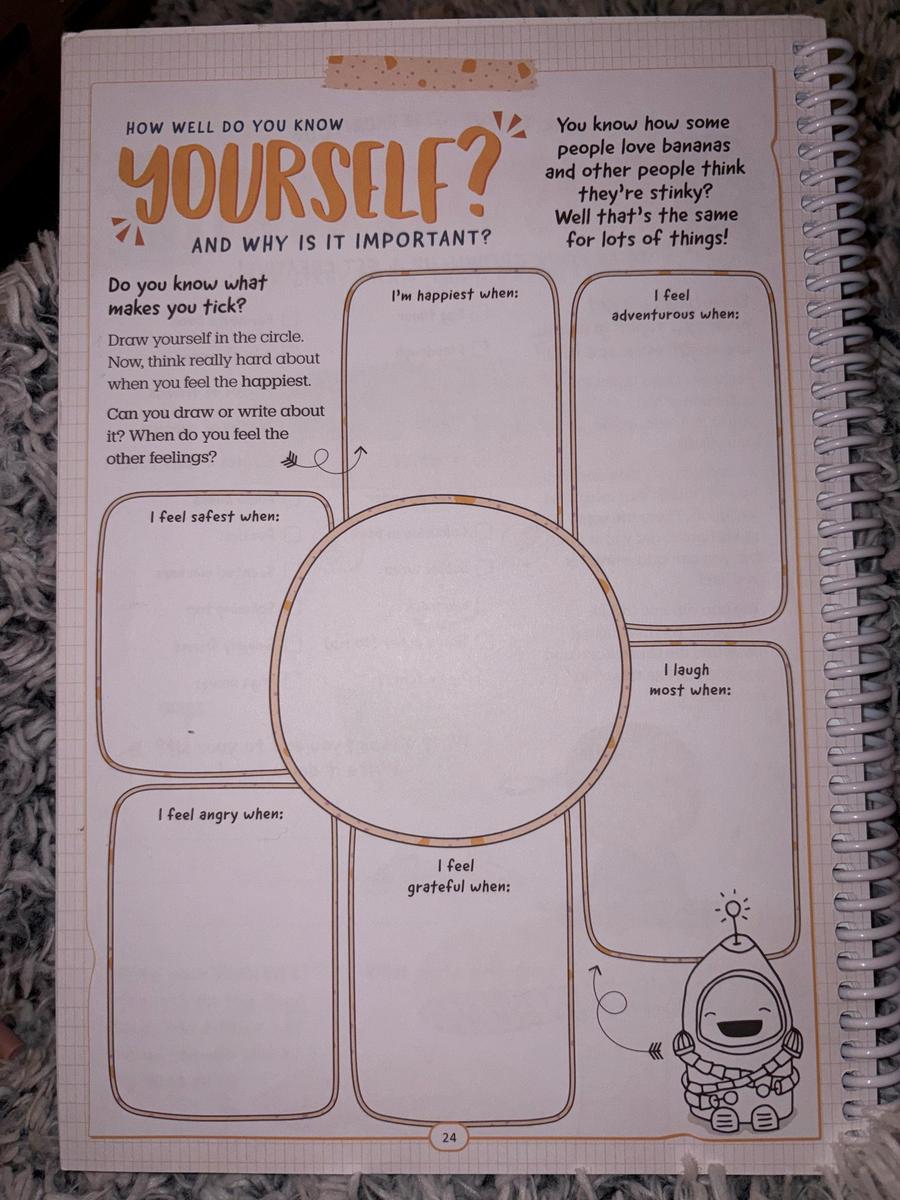 HOW WELL DO YOU KNOW
YOURSELF?
AND WHY IS IT IMPORTANT?
You know how some
people love bananas
and other people think
they're stinky?
Well that's the same
for lots of things!
Do you know what
makes you tick?
Draw yourself in the circle.
Now, think really hard about
when you feel the happiest.
Can you draw or write about
it? When do you feel the
other feelings?
I'm happiest when:
I feel
adventurous when:
I feel safest when:
I laugh
most when:
I feel angry when:
I feel
grateful when:
24